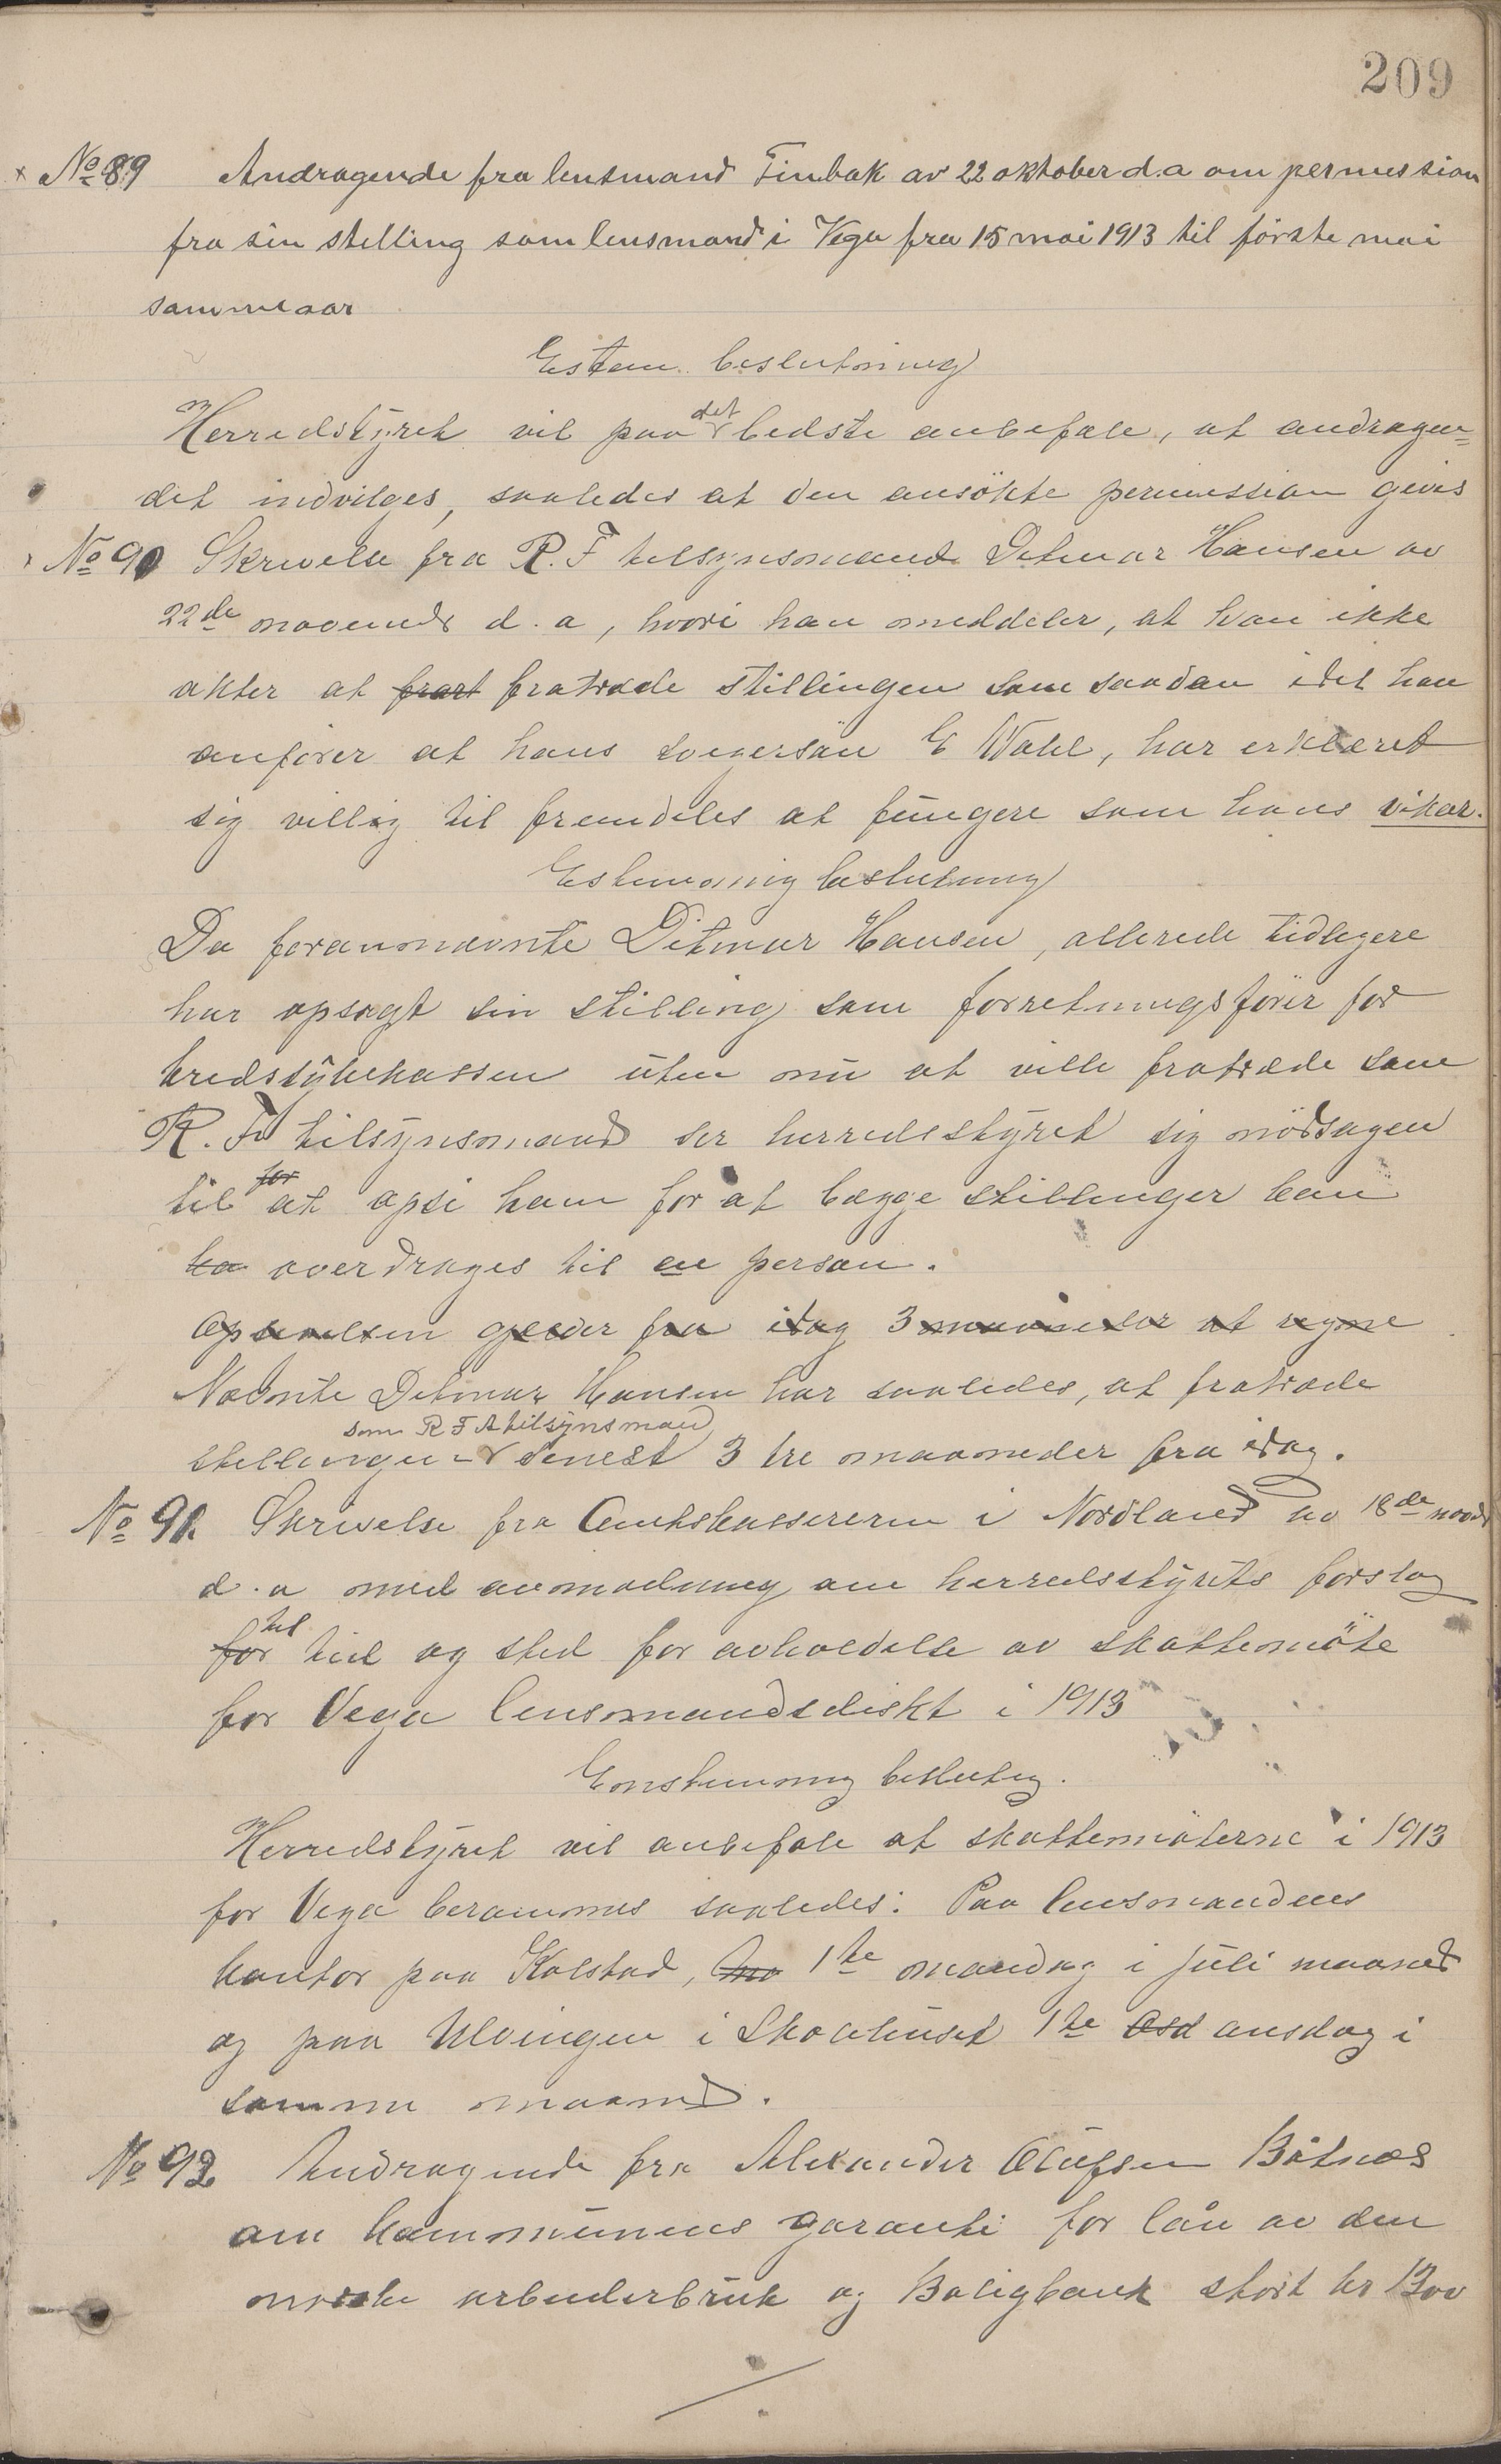 209
× No 89 Andragende fra lensmand Finbak av 22 oktober d.a om permission
fra sin stelling som lensmand i Vega fra 15 mai 1913 til förste mai
samme aar
Estem. beslutning
Herredstyret vil paa det bedste anbefale, at andragen=
det indvilges, saaledes at den ansökte permission gives
No 90 Skrivelse fra R.F tilsynsmand Ditmar Hansen av
22de novembr d.a, hvori han meddeler, at han ikke
akter at frart fratræde stillingen som saadan idet han
anförer at hans svigersön E Wahl, har erklæret
sig villig til fremdeles at fungere som hans vikar.
Estemmig beslutning
Da forannævnte Ditmar Hansen, allerede tidligere
har opsagt sin stilling som forretningsförer for
kredssykekassen uten nu at ville fratræde som
R.F tilsynsmand ser herredsstyret sig nödsagen
til for at opsi ham for at begge stillinger kan
ha overdrages til en person.
Opsielsen gjelder fra idag 3 maaneder at regne
Nævnte Ditmar Hansen har saaledes, at fratræde
som R F A tilsynsmand
stillingen senest 3 tre maaneder fra idag.
No 91. Skrivelse fra Amtskassereren i Nordland av 18de novbr
d.a med anmodning om herredsstyrets forslag
for til tid og sted for avholdelse av skattemöte
for Vega lensmandsdiskt i 1913
Enstemmig beslutng.
Herredstyret vil anbefale at skattemöterne i 1913
for Vega berammes saaledes: Paa lensmandens
kontor paa Kolstad, 1te mandag i juli maaned
og paa Ulvingen i Skolehuset 1te Osd onsdag i
samme maaned.
No 92 Andragende fra Alexander Olufsen Båtnes
om kommunens garanti for lån av den
norske arbeiderbruk og Boligbank stort kr 1300